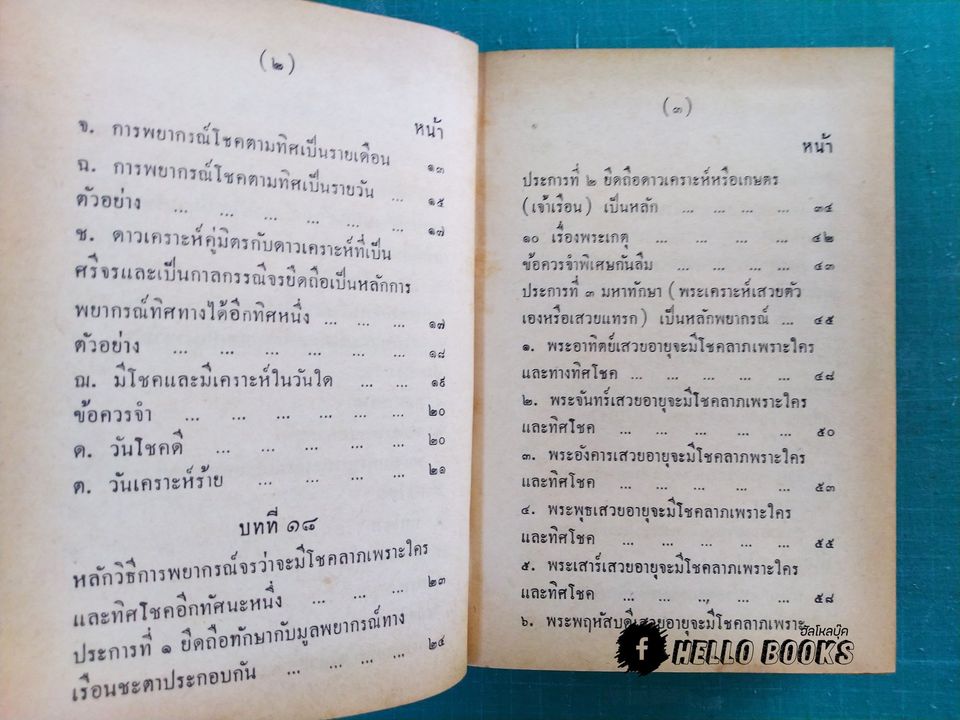 (๒)
หน้า
จ. การพยากรณ์โชคตามทิศเป็นรายเดือน ๑๓
ฉ. การพยากรณ์โชคตามทิศเป็นรายวัน ... ๑๕
ตัวอย่าง ... ... ... ... ... ... ๑๗
ช. ดาวเคราะห์คู่มิตรกับดาวเคราะห์ที่เป็น
ศรีจรและเป็นกาลกรรณีจรยึดถือเป็นหลักการ
พยากรณ์ทิศทางได้อีกทิศหนึ่ง ... ... ... ๑๗
ตัวอย่าง ... ... ... ... ... ... ๑๘
ฌ. มีโชคและมีเคราะห์ในวันใด ... ... ๑๙
ข้อควรจำ ... ... ... ... ... ... ๒๐
ด. วันโชคดี ... ... ... ... ... ๒๐
ต. วันเคราะห์ร้าย ... ... ... ... ๒๑
บทที่ ๑๘
หลักวิธีการพยากรณ์จรว่าจะมีโชคลาภเพราะใคร
และทิศโชคอีกทัศนะหนึ่ง ... ... ... ๒๓
ประการที่ ๑ ยึดถือทักษากับมูลพยากรณ์ทาง
เรือนชะตาประกอบกัน ... ... ... ... ๒๔
(๓)
หน้า
ประการที่ ๒ ยึดถือดาวเคราะห์หรือเกษตร
(เจ้าเรือน) เป็นหลัก ... ... ... ... ๓๔
๑๐ เรื่องพระเกตุ ... ... ... ... ๔๒
ข้อควรจำพิเศษกันลืม ... ... ... ... ๔๓
ประการที่ ๓ มหาทักษา (พระเคราะห์เสวยตัว
เองหรือเสวยแทรก) เป็นหลักพยากรณ์ ... ๔๕
๑. พระอาทิตย์เสวยอายุจะมีโชคลาภเพราะใคร
และทางทิศโชค ... ... ... ... ... ๔๘
๒. พระจันทร์เสวยอายุจะมีโชคลาภเพราะใคร
และทิศโชค ... ... ... ... ... ๕๐
๓. พระอังคารเสวยอายุจะมีโชคลาภพราะใคร
และทิศโชค ... ... ... ... ... ๕๓
๔. พระพุธเสวยอายุจะมีโชคลาภเพราะใคร
และทิศโชค ... ... ... ... ... ๕๕
๕. พระเสาร์เสวยอายุจะมีโชคลาภเพราะใคร
และทิศโชค ... ... ... ... ... ๕๘
๖. พระพฤหัสบดีเสวยอายุจะมีโชคลาภเพราะ
ฮัลโหลบุ๊ค
f HELLO BOOKS